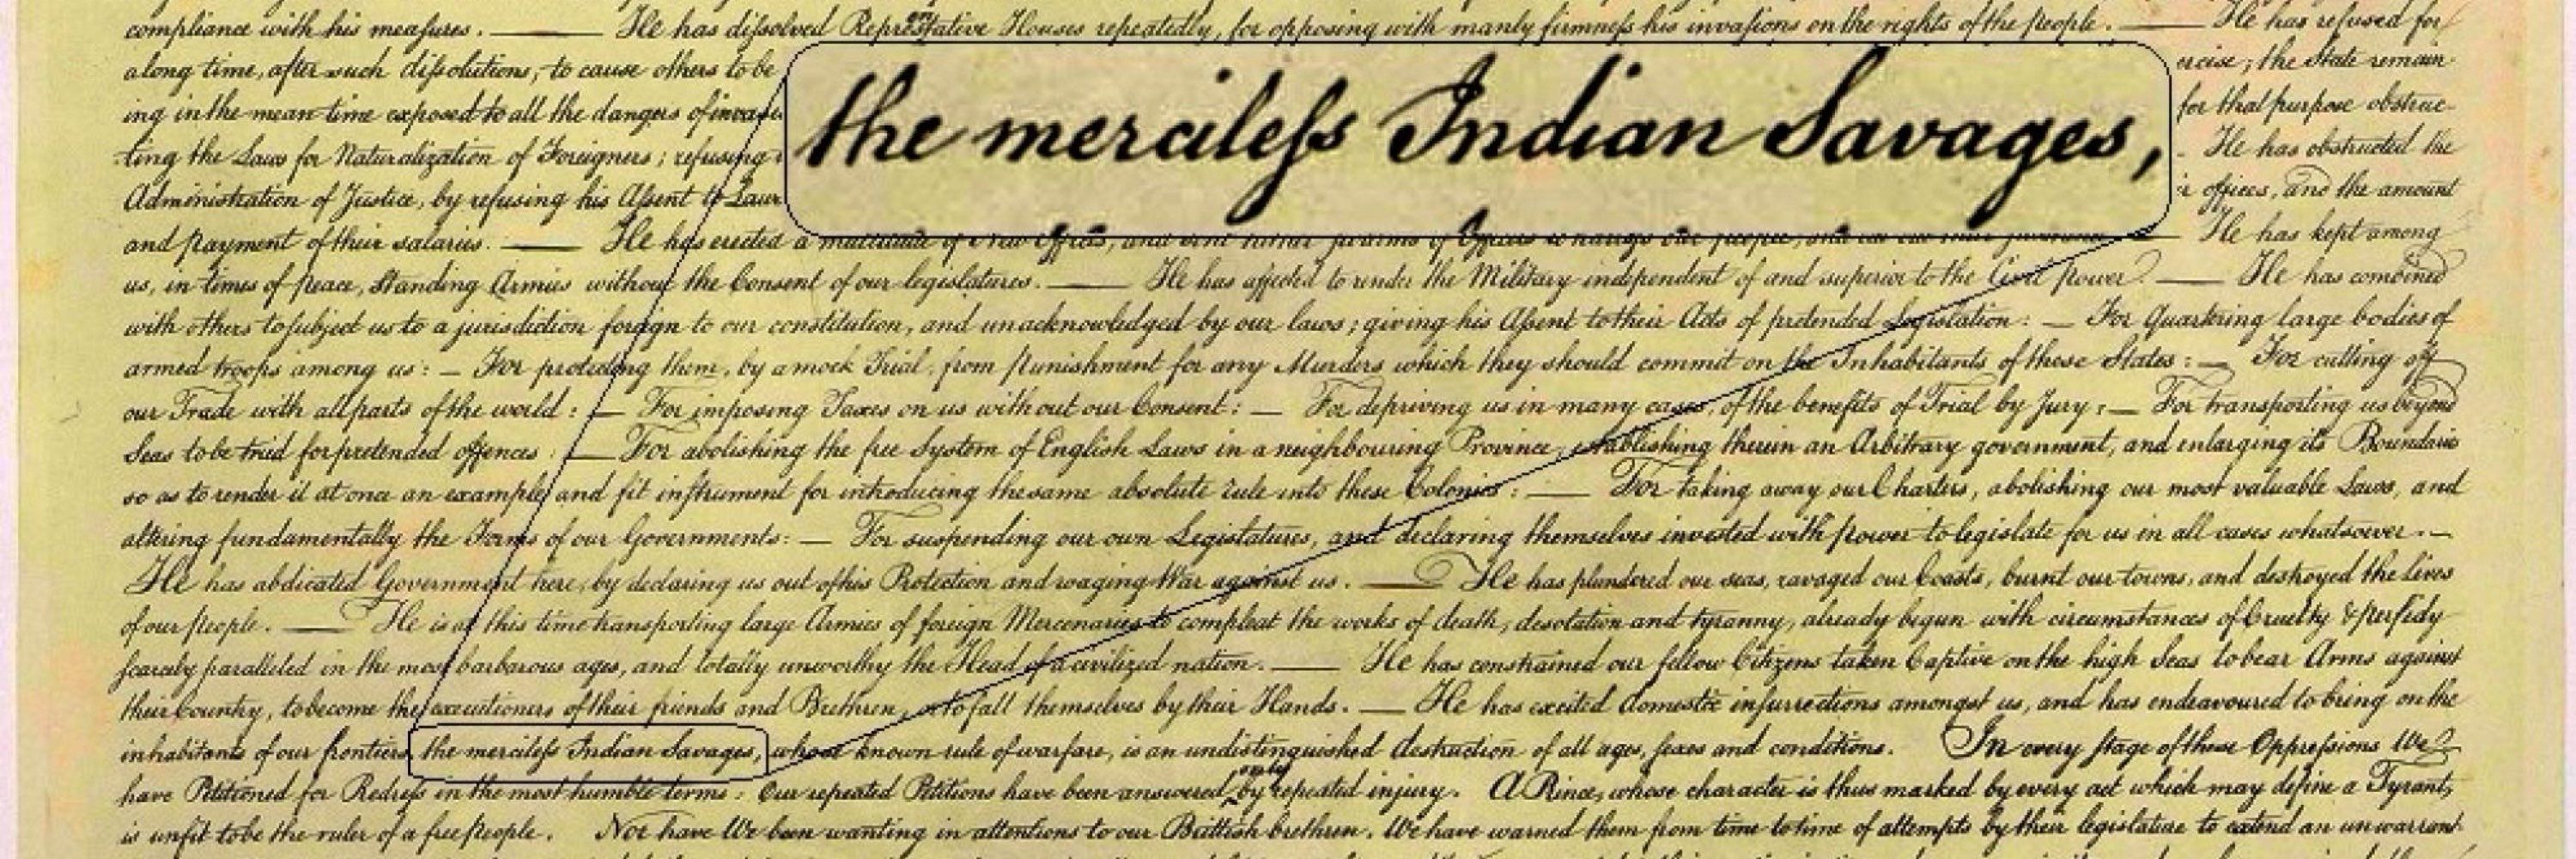 compliance with his meaſures. —— He has diſsolved Represtative Houses repeatedly, for opposing with manly firmneſs his invasions on the rights of the people. —— He has refused for
en
along time, after such diſsolutions, to cause others to be
ercise; the State remain-
ing in the mean time exposed to all the dangers of invasi
for that purpose obstruc-
ting the Laws for Naturalization of Foreigners; refusing
He has obstructed the
Administration of Justice, by refusing his Aſsent to Laws
r offices, and the amount
the mercileſs Indian Savages,
and payment of their salaries. —— He has erected a multitude of New Offices, and sent hither swarms of Officers to harrass our people, and eat out their substance. —— He has kept among
us, in times of peace, Standing Armies without the Consent of our legislatures. —— He has affected to render the Military independent of and superior to the Civil power. —— He has combined
with others to subject us to a jurisdiction foreign to our constitution, and unacknowledged by our laws; giving his Aſsent to their Acts of pretended Legislation: — For Quartering large bodies of
armed troops among us: — For protecting them, by a mock Trial, from punishment for any Murders which they should commit on the Inhabitants of these States: — For cutting off
our Trade with all parts of the world: — For imposing Taxes on us without our Consent: — For depriving us in many cases, of the benefits of Trial by Jury: — For transporting us beyond
Seas to be tried for pretended offences: — For abolishing the free System of English Laws in a neighbouring Province, establishing therein an Arbitrary government, and enlarging its Boundaries
so as to render it at once an example and fit inſtrument for introducing the same absolute rule into these Colonies: —— For taking away our Charters, abolishing our most valuable Laws, and
altering fundamentally the Forms of our Governments: — For suspending our own Legislatures, and declaring themselves invested with power to legislate for us in all cases whatsoever. —
He has abdicated Government here, by declaring us out of his Protection and waging War against us. —— He has plundered our seas, ravaged our Coasts, burnt our towns, and destroyed the lives
of our people. —— He is at this time transporting large Armies of foreign Mercenaries to compleat the works of death, desolation and tyranny, already begun with circumstances of Cruelty & perfidy
ſcarcely paralleled in the most barbarous ages, and totally unworthy the Head of a civilized nation. —— He has constrained our fellow Citizens taken Captive on the high Seas to bear Arms against
their Country, to become the executioners of their friends and Brethren, or to fall themselves by their Hands. —— He has excited domestic inſurrections amongst us, and has endeavoured to bring on the
inhabitants of our frontiers, the mercileſs Indian Savages, whose known rule of warfare, is an undistinguished destruction of all ages, ſexes and conditions. In every ſtage of these Oppreſsions We
have Petitioned for Redreſs in the most humble terms: Our repeated Petitions have been answered by repeated injury. A Prince, whose character is thus marked by every act which may define a Tyrant,
only
is unfit to be the ruler of a free people. Nor have We been wanting in attentions to our Brittish brethren. We have warned them from time to time of attempts by their legislature to extend an unwarrant